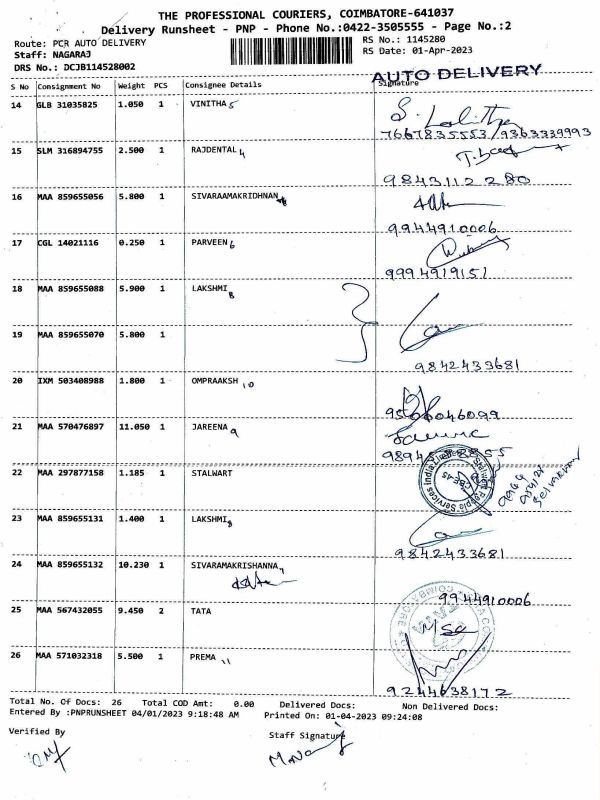 THE PROFESSIONAL COURIERS, COIMBATORE-641037
Delivery Runsheet - PNP - Phone No.:0422-3505555 - Page No.:2
Route: PCR AUTO DELIVERY
RS No.: 1145280
Staff: NAGARAJ
RS Date: 01-Apr-2023
DRS No.: DCJB114528002
AUTO DELIVERY
S No Consignment No Weight PCS Consignee Details Signature
14 GLB 31035825 1.050 1 VINITHA 5
7667835553/9363339993
15 SLM 316894755 2.500 1 RAJDENTAL 4
9843112280
16 MAA 859655056 5.800 1 SIVARAAMAKRIDHNAN
9944910006
17 CGL 14021116 0.250 1 PARVEEN 6
9994919151
18 MAA 859655088 5.900 1 LAKSHMI 8
19 MAA 859655070 5.800 1
9842433681
20 IXM 503408988 1.800 1 OMPRAAKSH 10
21 MAA 570476897 11.050 1 JAREENA 9
22 MAA 297877158 1.185 1 STALWART
23 MAA 859655131 1.400 1 LAKSHMI 8
9842433681
24 MAA 859655132 10.230 1 SIVARAMAKRISHANNA 7
9944910006
25 MAA 567432055 9.450 2 TATA
26 MAA 571032318 5.500 1 PREMA 11
9244638172
Total No. Of Docs: 26 Total COD Amt: 0.00 Delivered Docs: Non Delivered Docs:
Entered By :PNPRUNSHEET 04/01/2023 9:18:48 AM Printed On: 01-04-2023 09:24:08
Verified By Staff Signature